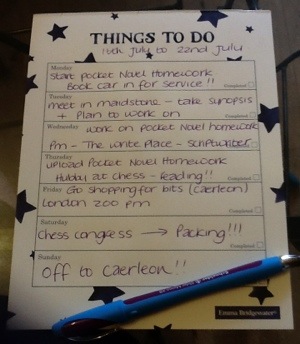 THINGS TO DO
16th July to 22nd July
Monday
Start Pocket Novel Homework
Book car in for Service!!
Completed
Tuesday
meet in maidstone - take synopsis
+ Plan to work on
Completed
Wednesday work on Pocket Novel homework
Pm - The write Place - Scriptwriter
Thursday
upload Pocket Novel Homework
Hubby at chess - reading!!
Completed
Friday Go shopping for bits (Caerleon)
London zoo pm
Completed
Saturday
Chess congress → Packing!!!
Completed
Sunday
Off to Caerleon!!
Emma Bridgewater